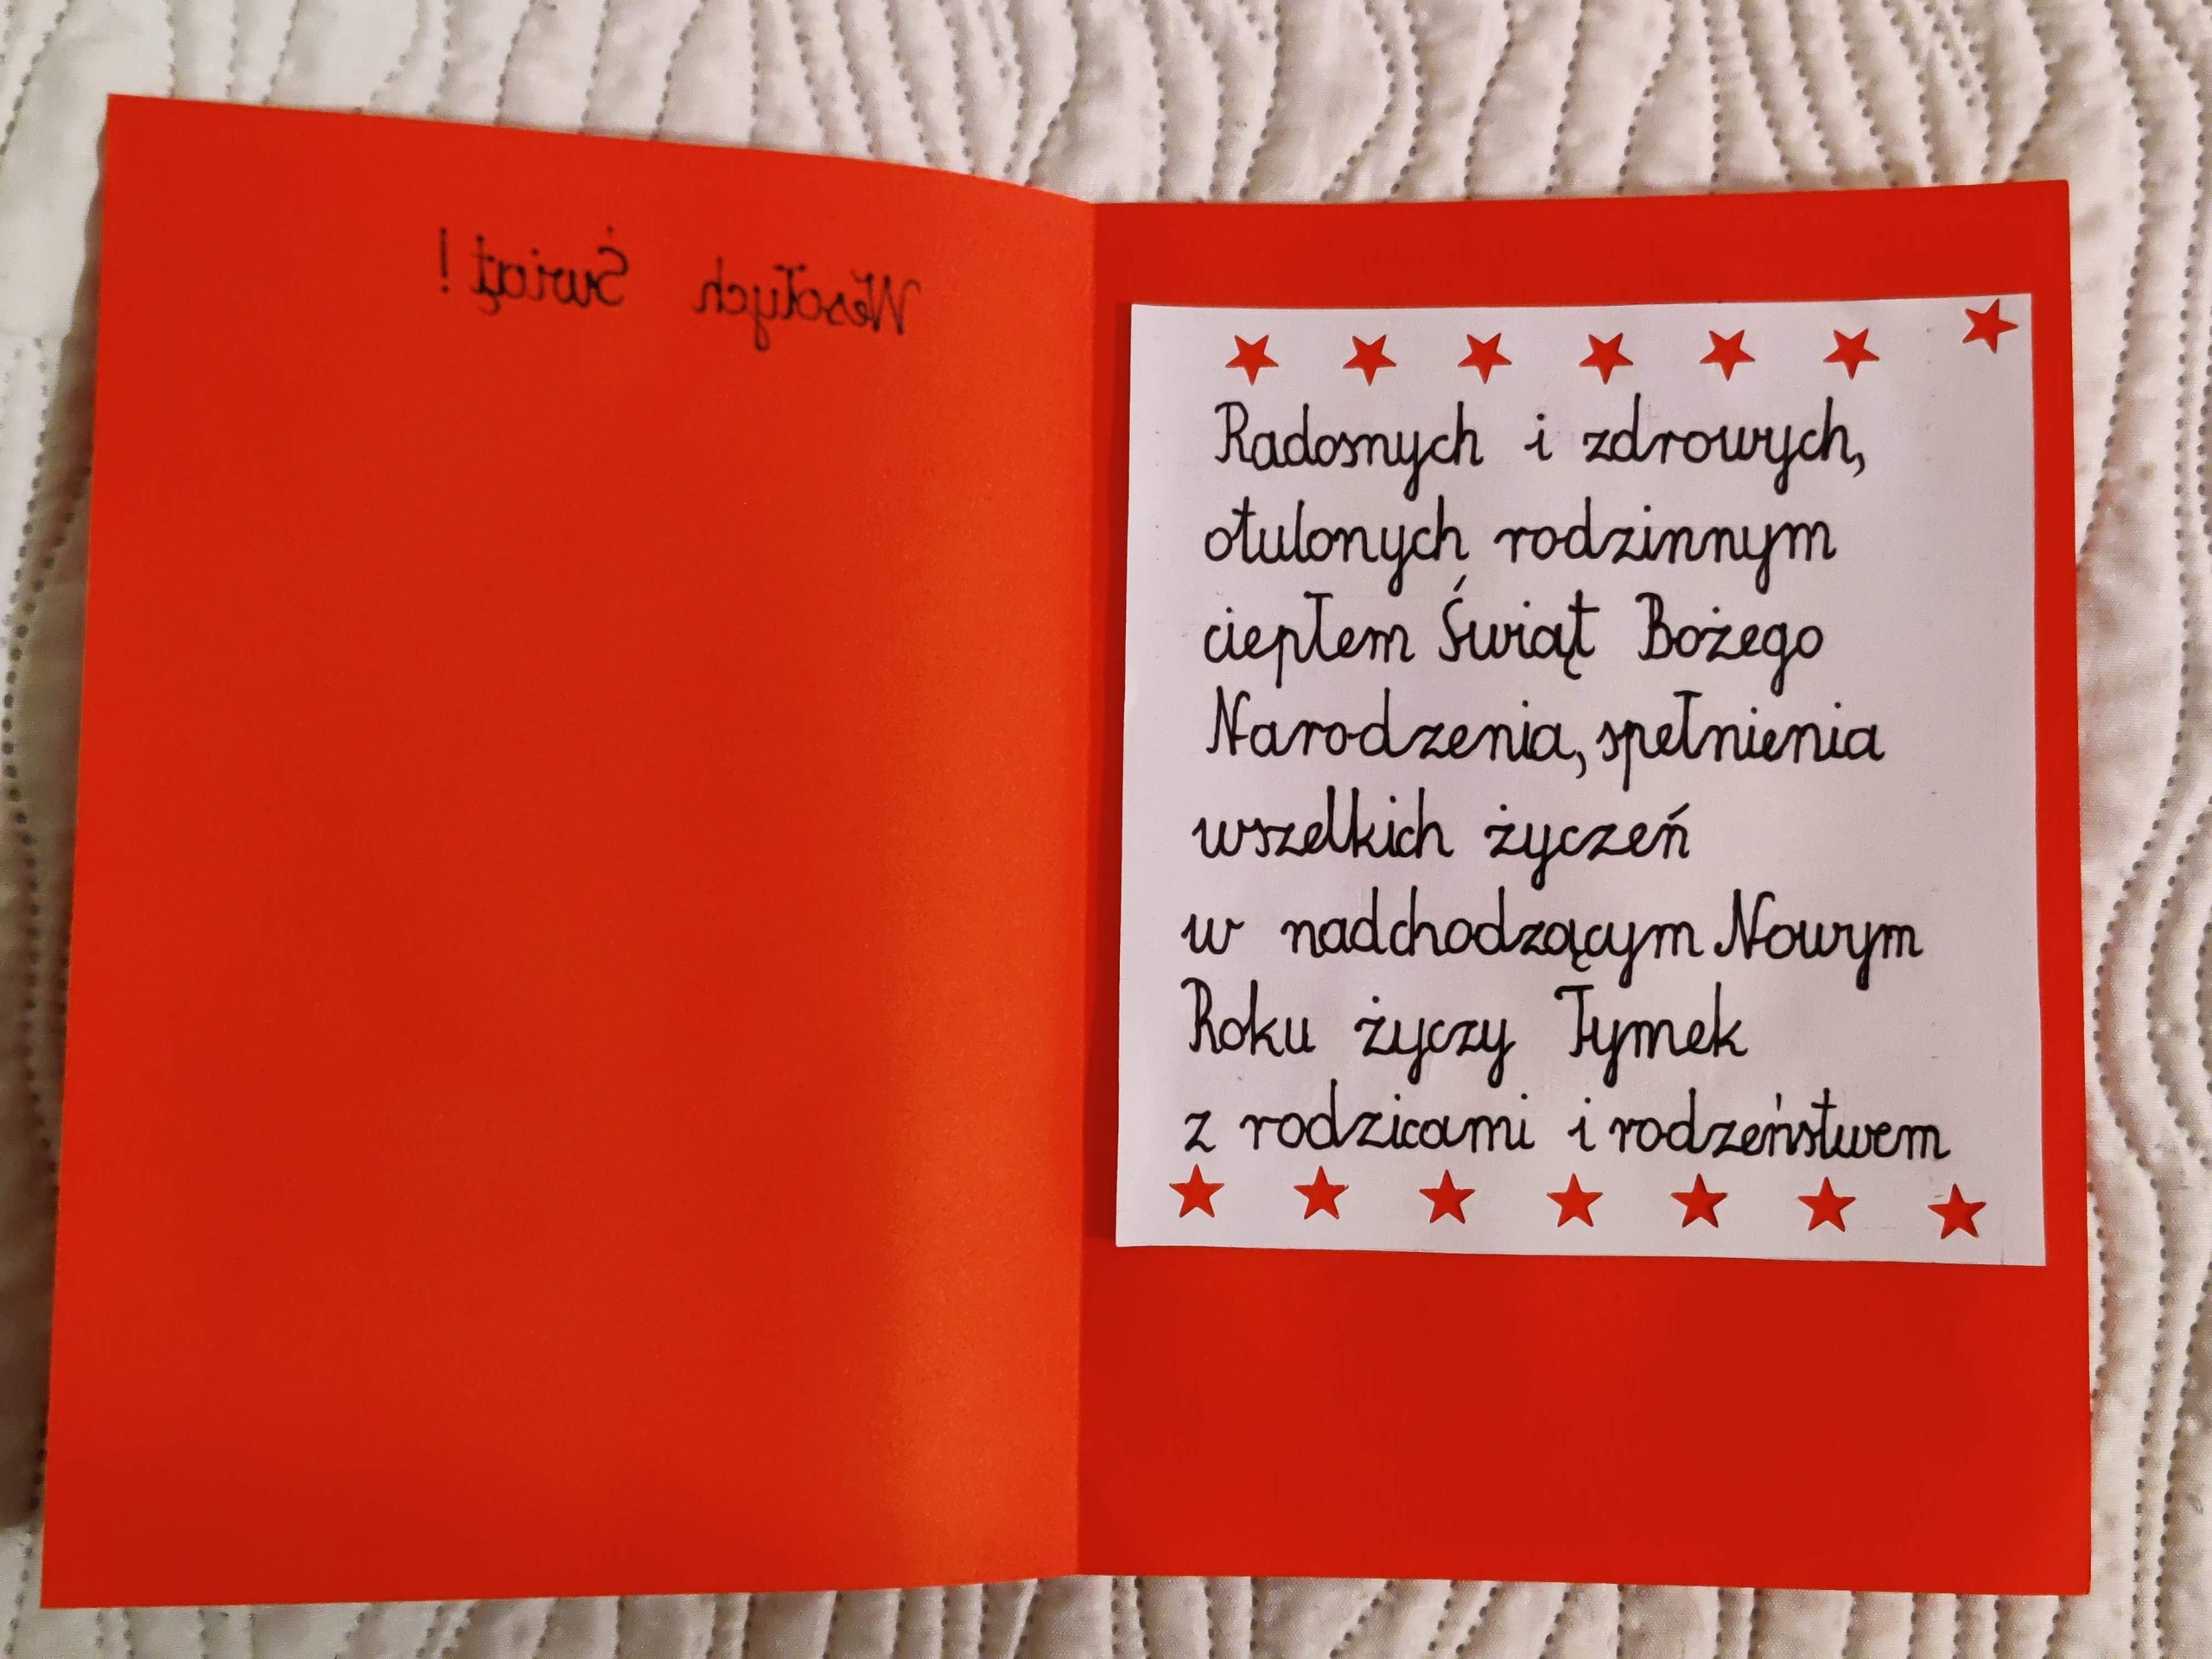 Wesołych Świąt!
Radosnych i zdrowych,
otulonych rodzinnym
ciepłem Świąt Bożego
Narodzenia, spełnienia
wszelkich życzeń
w nadchodzącym Nowym
Roku życzy Tymek
z rodzicami i rodzeństwem